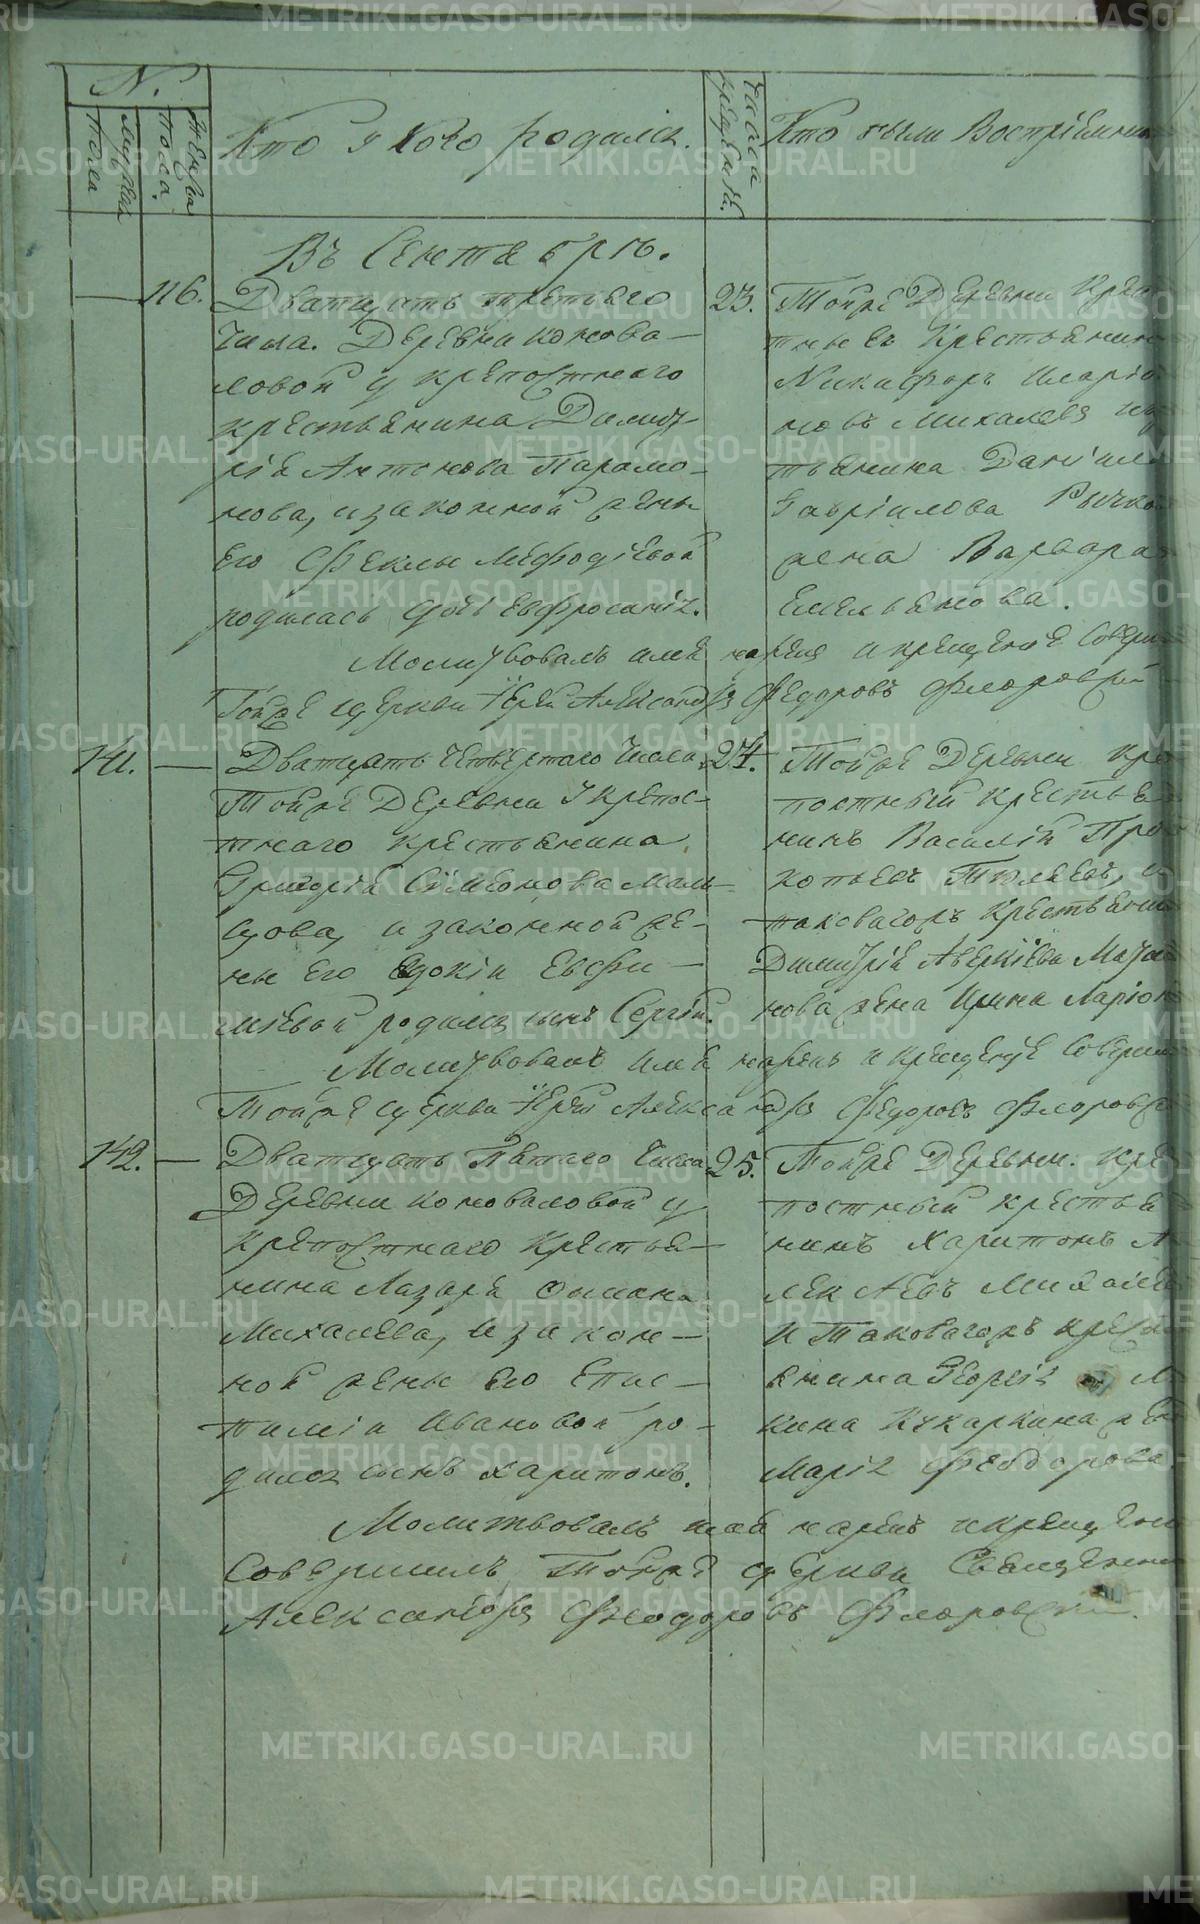 N.
Мужеска пола
Женска пола.
Кто у кого родился.
Числа крещенія.
Кто были Воспріемни
Въ Сентябрѣ.
116. Дватцать третьяго
числа. Деревни Конова-
ловой у крѣпостнаго
крестьянина Димит-
рія Антонова Парамо-
нова, и законной жены
его Феклы Мефодіевой
родилась дочь Евфросинія.
23. Тойже Деревни Крѣпос
тные Крестьянин
Никифоръ Иларіо
новъ Михалевъ
тьянина Даніила
Гавріилова Рычко
жена Варвара
Емельянова.
Молитвовалъ имя нарекъ и крещеніе Соверши
Тойже церкви Іерей Александръ Федоровъ Флоровскій
141. Дватцать четвертаго числа
Тойже Деревни у крѣпос-
тнаго крестьянина
Григорія Симіонова Маль-
цова, и законной же-
ны его Евдокіи Евфи-
міевой родился сынъ Сергій.
24. Тойже Деревни Крѣ
постный крестья
нинъ Василій Про
копьевъ Тюляевъ, и
таковагожъ Крестьянин
Димитрія Аверкіева
нова жена Ирина Ларіон
Молитвовалъ имя нарекъ и крещеніе Соверши
Тойже церкви Іерей Александръ Федоровъ Флоровск
142. Дватцать Пятаго числа
Деревни Коноваловой у
крѣпостнаго Крестья-
нина Лазаря
Михалева, и закон-
ной жены его Епис-
тиміи Ивановой ро-
дился сынъ Харитонъ.
25. Тойже Деревни. Крѣ
постный крестья
нинъ Харитонъ А
лексѣевъ Михалев
и таковагожъ крест
янина Георгія
кина Кукаркина жен
Марія Феодорова.
Молитвовалъ имя нарекъ и крещені
Совершилъ Тойже церкви Священни
Александръ Феодоровъ Флоровскій.
METRIKI.GASO-URAL.RU